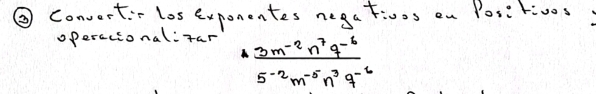 ③ Convertir los exponentes negativos en Positivos y
operacionalizar
3m⁻²n⁷q⁻⁶
5⁻²m⁻⁵n³q⁻⁶